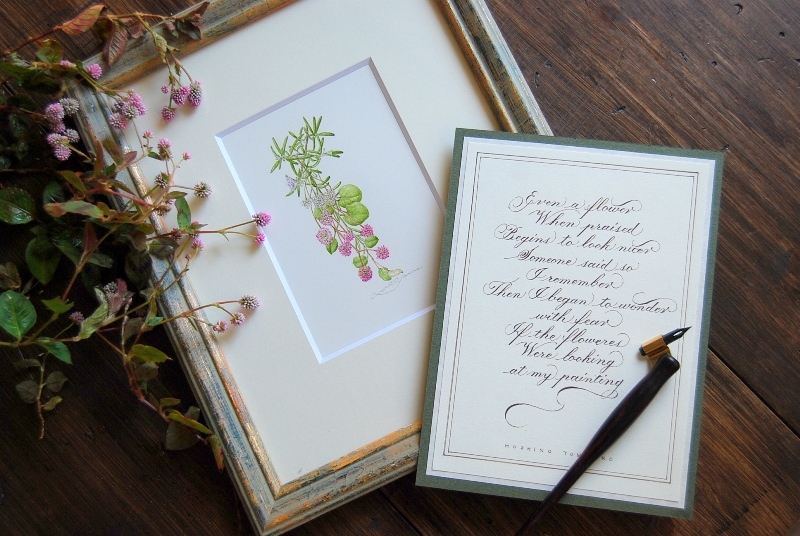 Even a flower
When praised
Begins to look nicer
Someone said so
I remember
Then I began to wonder
with fear
If the floweres
Were looking
at my painting